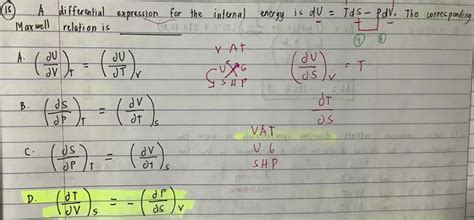 (15) A differential expression for the internal energy is dU = TdS - PdV. The corresponding
Maxwell relation is
A. (∂U/∂V)_T = (∂U/∂T)_V
B. (∂S/∂P)_T = (∂V/∂T)_S
C. (∂S/∂P)_T = (∂V/∂t)_S
D. (∂T/∂V)_S = -(∂P/∂S)_V
V A T
U G
S H P
(∂U/∂S)_V = T
∂T
∂S
VAT
U G
SHP